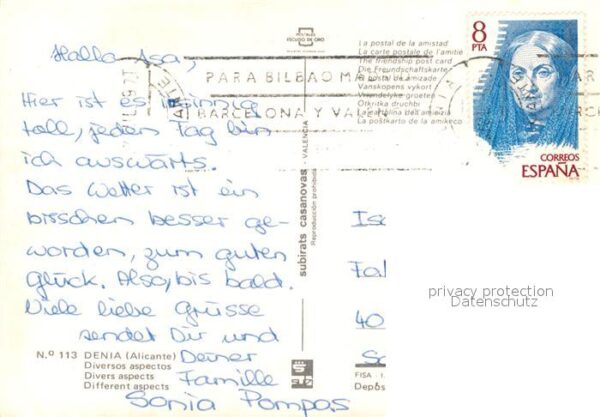 POSTALES
ESCUDO DE ORO
Hallo Isa,
Hier ist es wahnsinnig
toll, jeden Tag bin
ich auswärts.
Das Wetter ist ein
bisschen besser ge-
worden, zum guten
Glück. Also, bis bald.
Viele liebe Grüsse
sendet Dir und
Deiner
Familie
Sonia Pompos
N.º 113 DENIA (Alicante)
Diversos aspectos
Divers aspects
Different aspects
subirats casanovas - VALENCIA
Reproducción prohibida
La postal de la amistad
La carte postale de l'amitié
The friendship post card
Die Freundschaftskarte
A postal de amizade
Vanskopens vykort
Vriendelyke groeten
Otkritka druchbi
La cartolina dell'amicizia
La poŝtkarto de la amikeco
PARA BILBAO MADRID
BARCELONA Y VALEN
8
PTA
CORREOS
ESPAÑA
40
privacy protection
Datenschutz
FISA